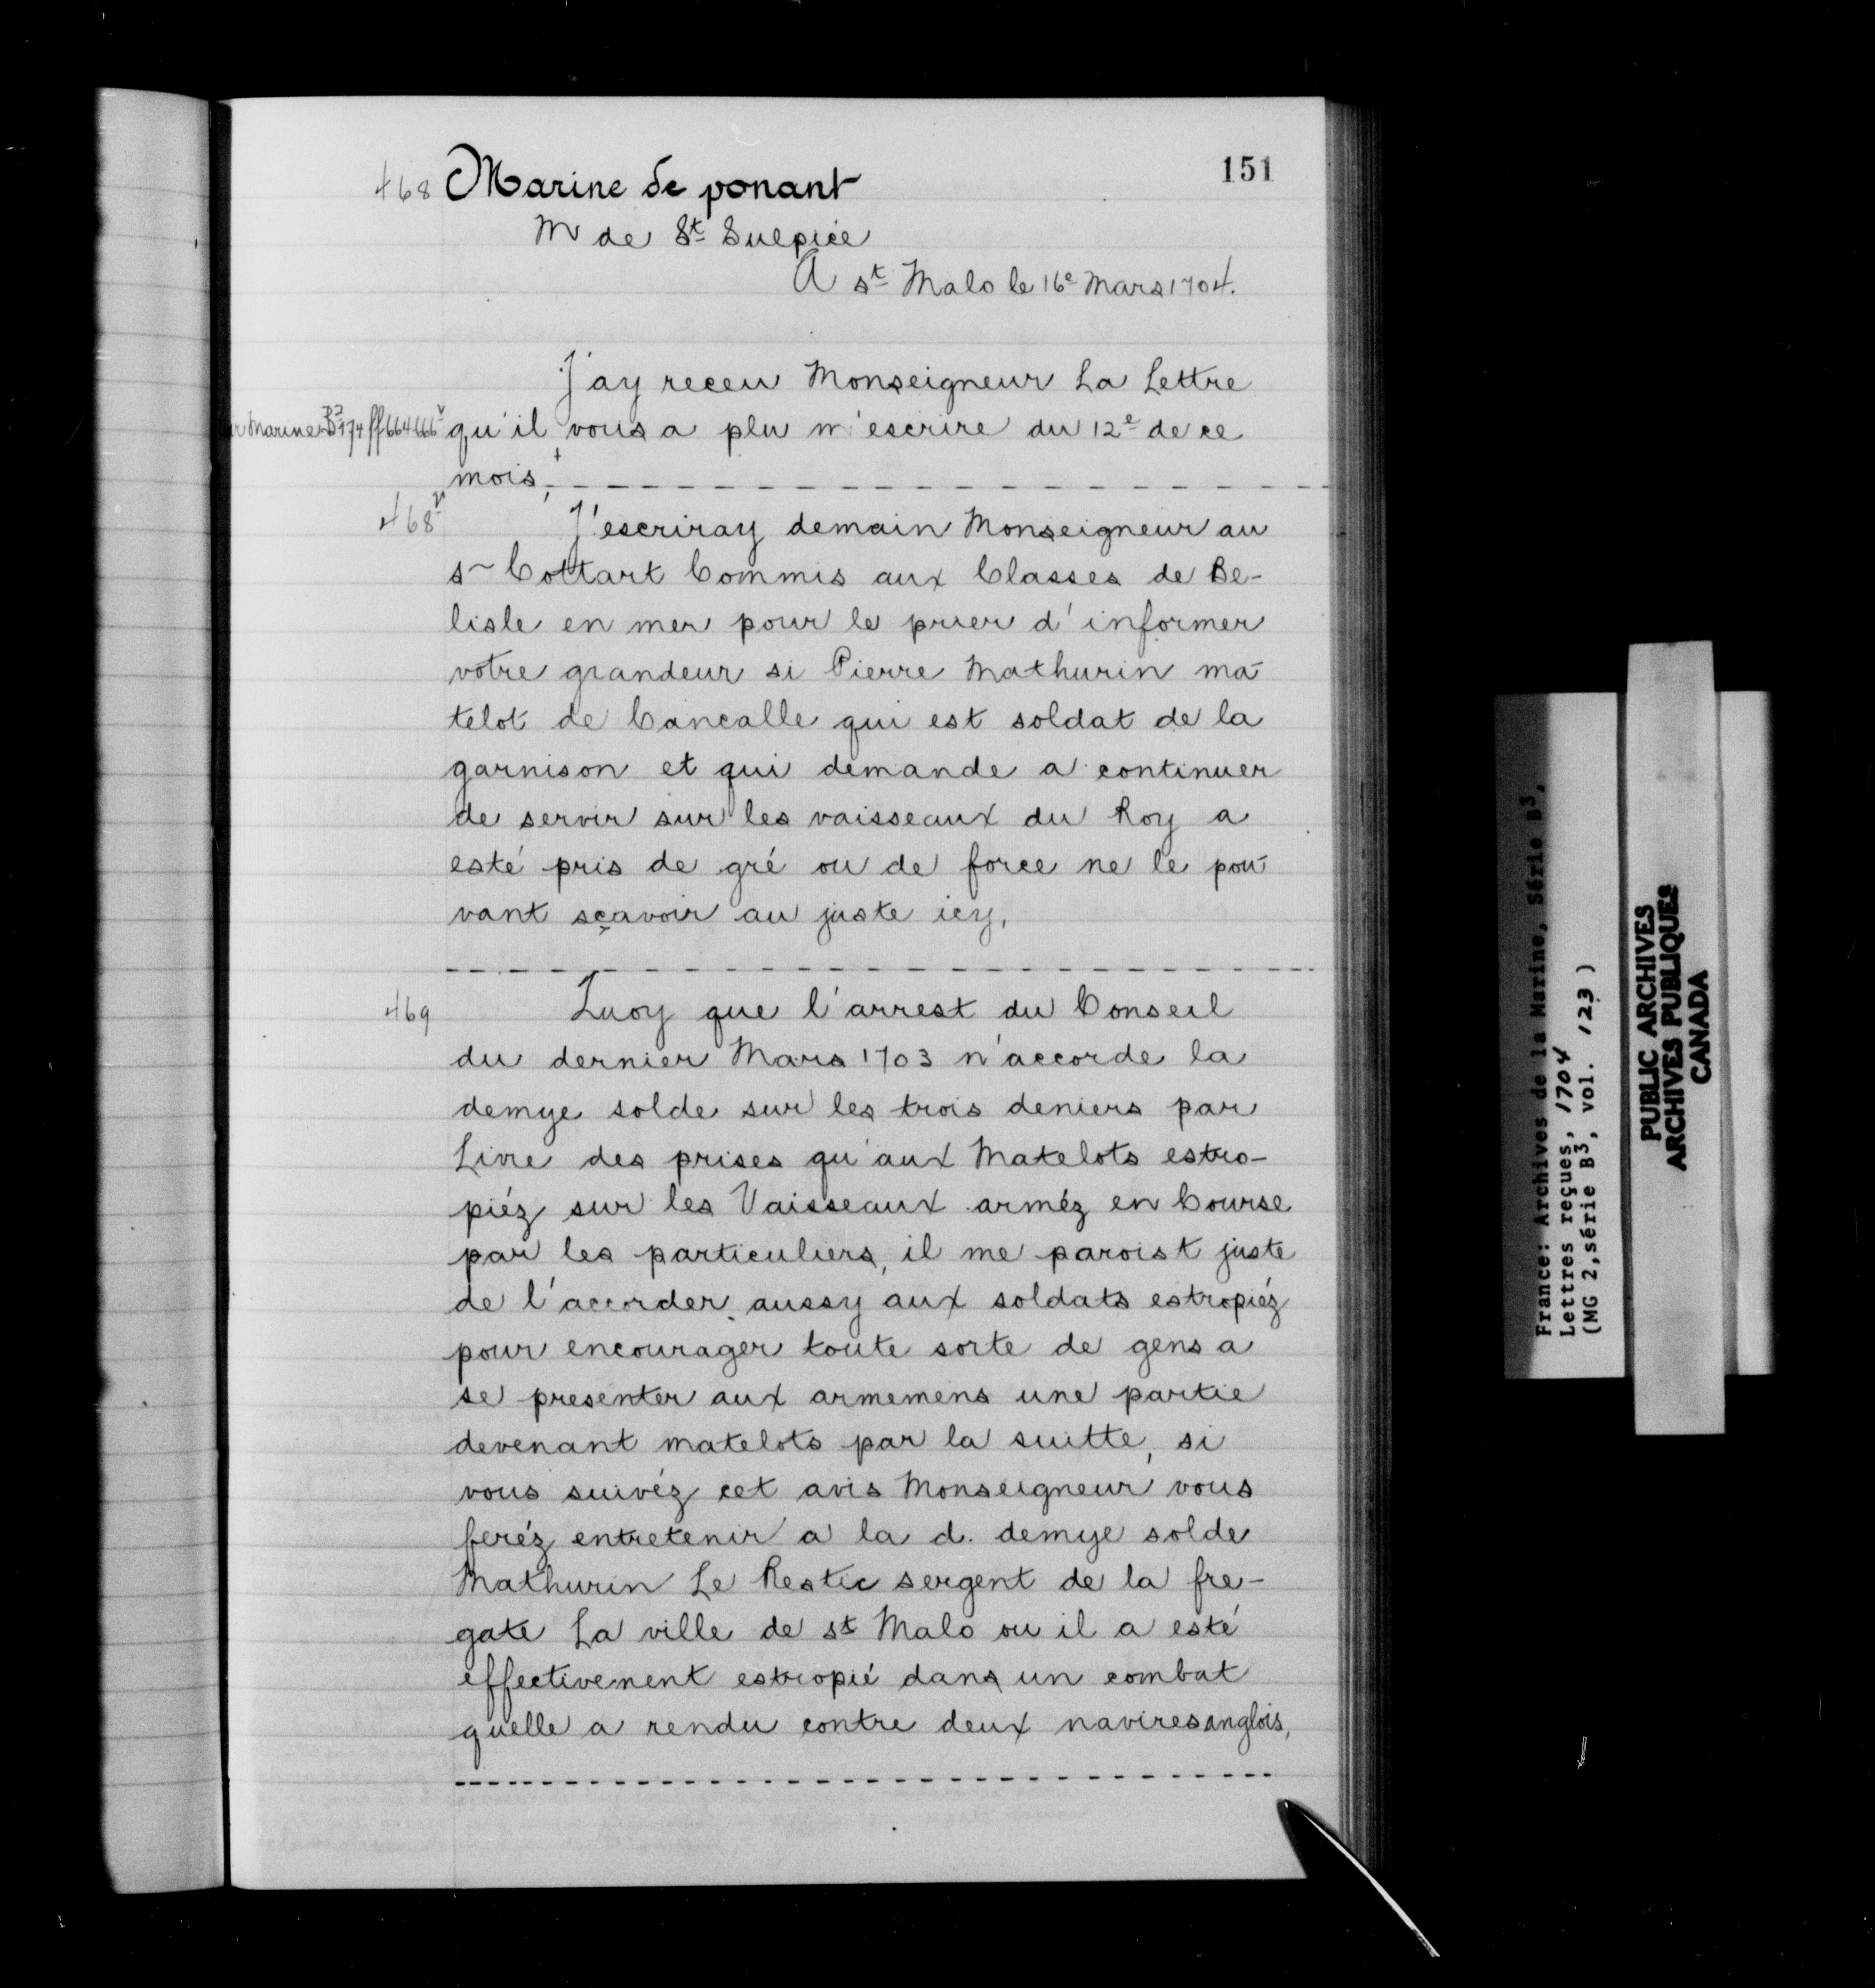 151
468 Marine de ponant
Mr de St Sulpice
A st Malo le 16e Mars 1704.
J'ay receu Monseigneur La Lettre
Marine B2 174 ff 664 666v
qu'il vous a plu m'escrire du 12e de ce
mois,+
468v
J'escriray demain Monseigneur au
sr Cottart Commis aux Classes de Be-
lisle en mer pour le prier d'informer
votre grandeur si Pierre Mathurin ma-
telot de Cancalle qui est soldat de la
garnison et qui demande a continuer
de servir sur les vaisseaux du Roy a
esté pris de gré ou de force ne le pou-
vant sçavoir au juste icy,
469
Quoy que l'arrest du Conseil
du dernier Mars 1703 n'accorde la
demye solde sur les trois deniers par
Livre des prises qu'aux Matelots estro-
piéz sur les Vaisseaux arméz en Course
par les particuliers, il me paroist juste
de l'accorder aussy aux soldats estropiéz
pour encourager toute sorte de gens a
se presenter aux armemens une partie
devenant matelots par la suitte, si
vous suivéz cet avis Monseigneur vous
feréz entretenir a la d. demye solde
Mathurin Le Restic sergent de la fre-
gate La ville de st Malo ou il a esté
effectivement estropié dans un combat
quelle a rendu contre deux navires anglois,
France: Archives de la Marine, Série B3,
Lettres reçues, 1704
(MG 2, série B3, vol. 123)
PUBLIC ARCHIVES
ARCHIVES PUBLIQUES
CANADA